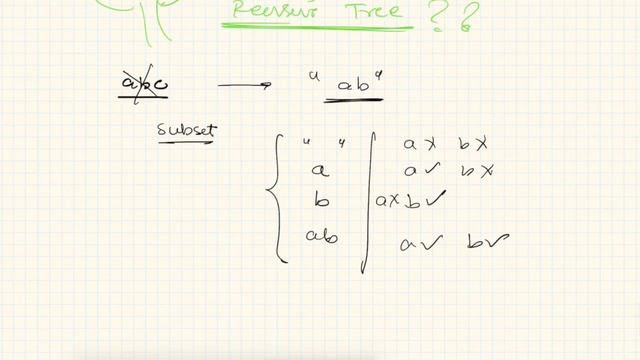 Recursive Tree ??
abc → "ab"
subset
" " a× b×
a a✓ b×
b a× b✓
ab a✓ b✓